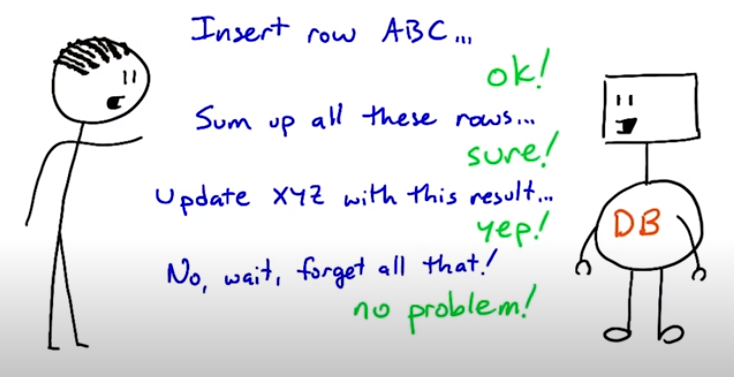 Insert row ABC...
ok!
Sum up all these rows...
sure!
Update XYZ with this result...
yep!
DB
No, wait, forget all that!
no problem!